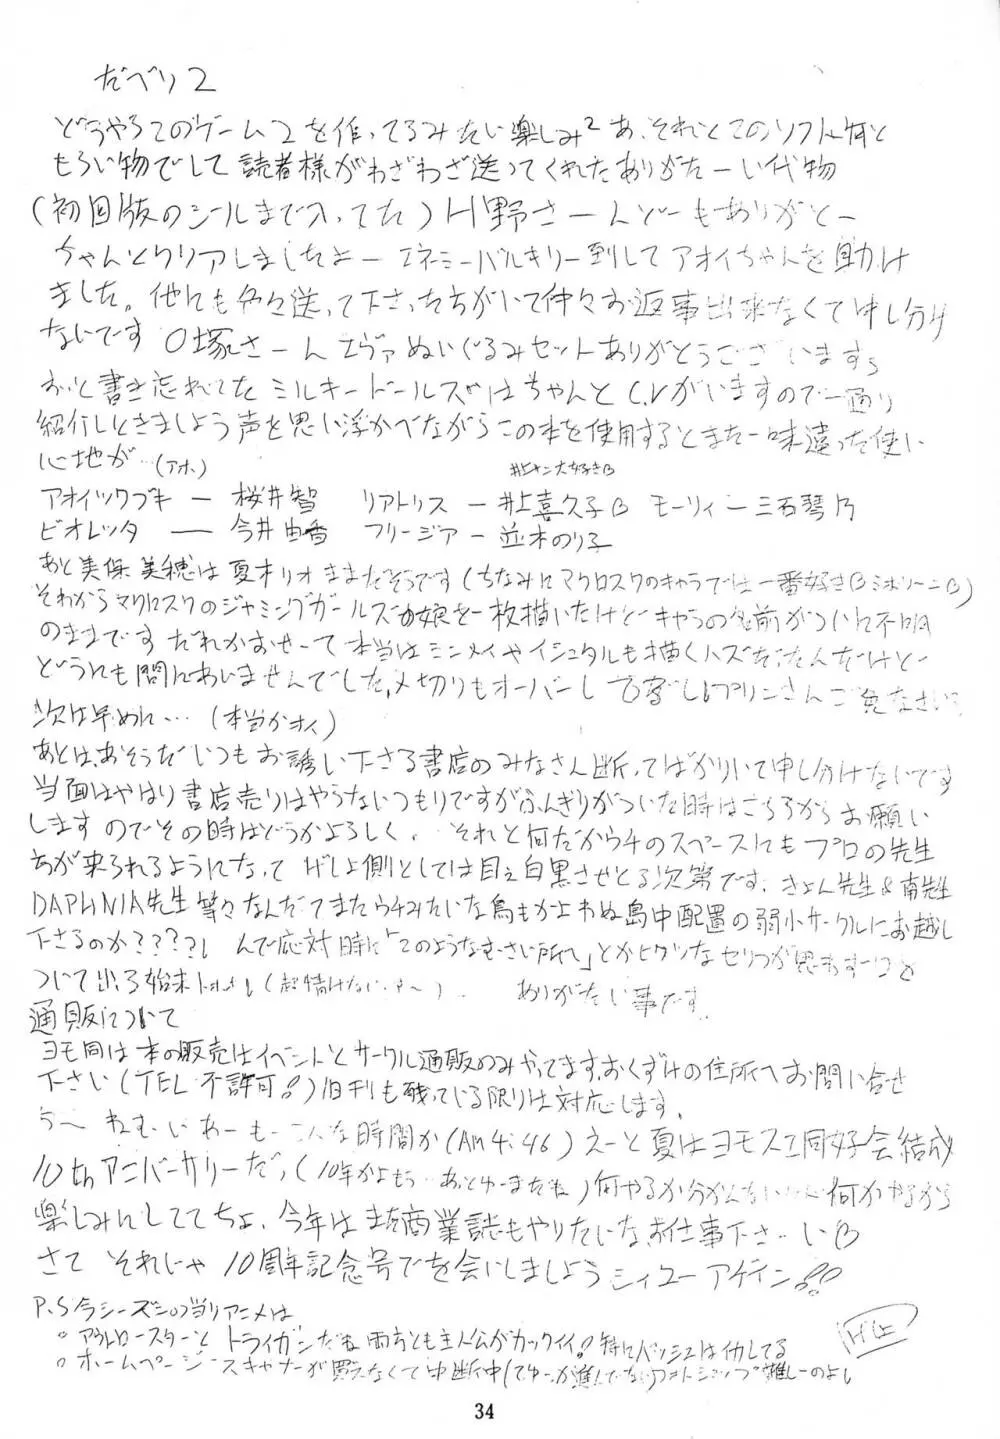 だべり2
どうやらこのゲーム2を作ってるみたい楽しみ² あ、それとこのソフト何と
もらい物でして読者様がわざわざ送ってくれたありがたーい代物
(初回版のシールまで入ってた) H野さーんどーもありがとー
ちゃんとクリアしましたよー エネミーバルキリー倒してアオイちゃんを助け
ました。他にも色々送って下さった方がいて中々お返事出来なくて申し分け
ないです O塚さーんエヴァぬいぐるみセットありがとうございます
おっと書き忘れてた ミルキードールズにはちゃんとC.Vがいますので一通り
紹介しときましょう声を思い浮かべながらこの本を使用するとまた一味違った使い
心地が…(アホ)
井上キャン大好き
アオイツクブキ ー 桜井智 リアトリス ー 井上喜久子 モーリィ ー 三石琴乃
ビオレッタ ー 今井由香 フリージア ー 並木のり子
あと美保美穂は夏木リオままだそうです(ちなみにマクロス7のキャラでは一番好きミホリーニ)
それからマクロス7のジャミングガールズの娘を一枚描いたけどキャラの名前がついに不明
のままです だれかおせーて 本当はミンメイやイシュタルも描くハズだったんだけど
どうにも間にあいませんでした〆切りもオーバーし プリンさんご免なさい
次は早めに…(本当かオイ)
あとは、あそうだいつもお誘い下さる書店のみなさん断ってばかりいて申し分けないです
当面はやはり書店売りはやらないつもりですがふんぎりがついた時はこちらからお願い
しますのでその時はどうかよろしく、それと何だかウチのスペースにもプロの先生
方が来られるようになって げしょ側としては目え白黒させとる次第です、きょん先生&南先生
DAPHNIA先生等々なんだってまたウチみたいな鳥もかよわぬ島中配置の弱小サークルにお越し
下さるのか????! んで応対時に「このようなむさい所へ」とかヒクツなセリフが思わず口を
ついて出る始末 (超情けないっやー)、 ありがたい事です
通販について
ヨモ同は本の販売はイベントとサークル通販のみやってます、おくずけの住所へお問い合せ
下さい(TEL不許可!)旧刊も残っている限りは対応します、
うー ねむいわーもーこんな時間か(Am4:46) えーと夏はヨモスエ同好会結成
10thアニバーサリーだっ(10年かよもう…あっとゆーまだね)何やるか分かんないけど何かやるから
楽しみにしててちょ、今年はまた商業誌もやりたいなお仕事下さーい
さて それじゃ 10周年記念号でを会いしましょうシィユーアゲイン!!
P.S今シーズンの当りアニメは
○アウトロースターと トライガンだね両方とも主人公がカックイイ!特にバッシュはイカしてる
○ホームページスキャナーが買えなくて中断中(てゆーか進んでない)フォトショップ難しーのよし
34